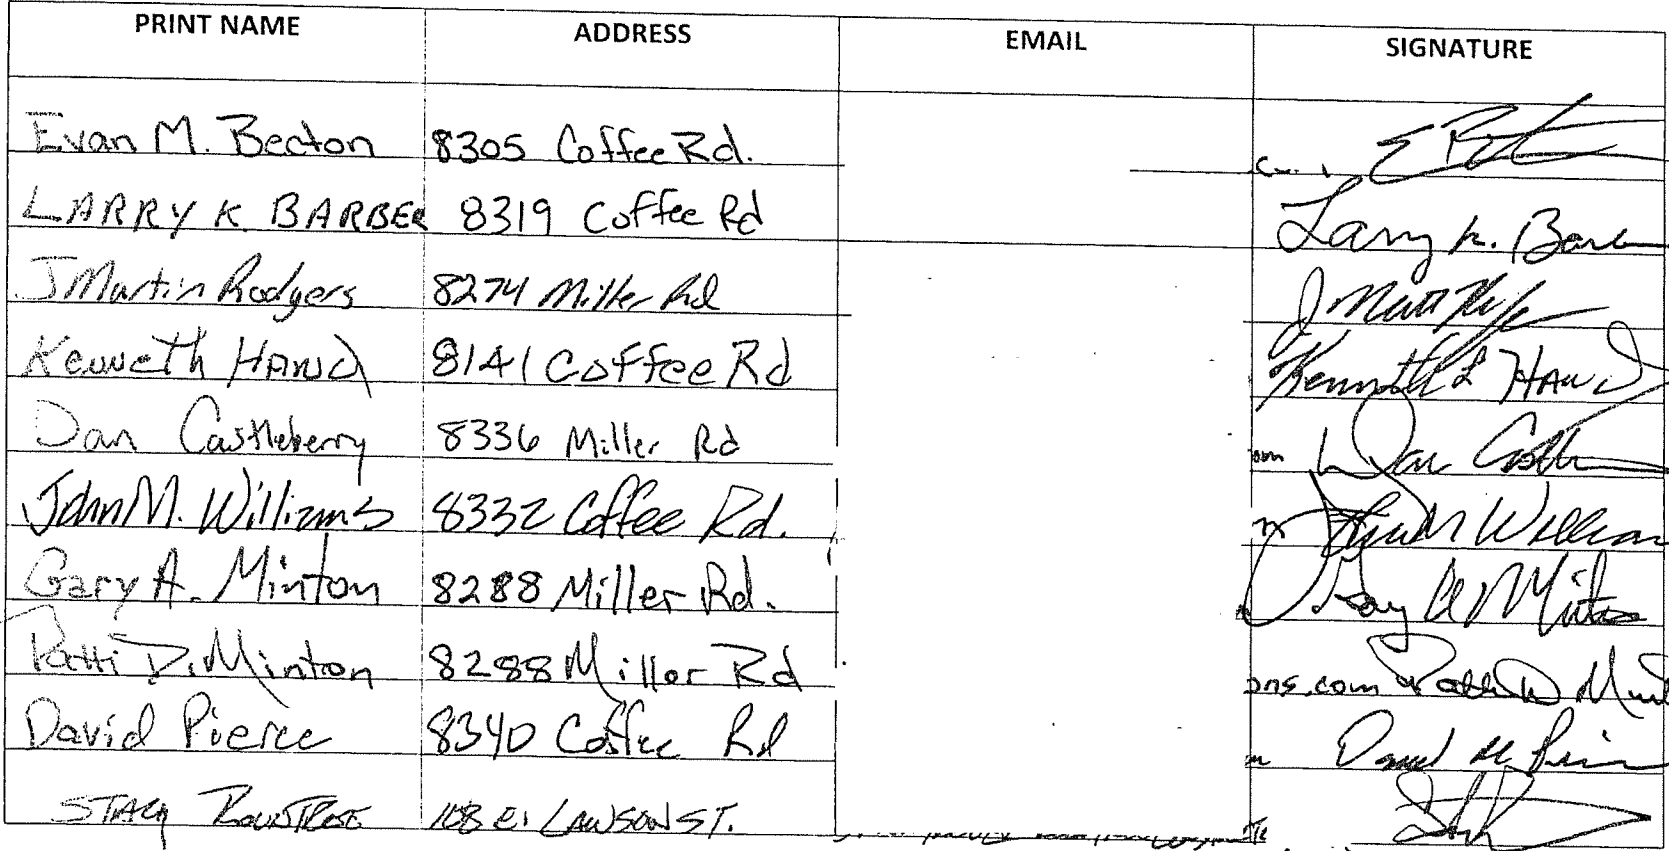 PRINT NAME ADDRESS EMAIL SIGNATURE
Evan M. Becton 8305 Coffee Rd.
LARRY K. BARBER 8319 Coffee Rd Larry K. Barber
J Martin Rodgers 8274 Miller Rd
Kenneth HAND 8141 Coffee Rd Kenneth L HAND
Dan Castleberry 8336 Miller Rd om Dan
John M. Williams 8332 Coffee Rd. John M William
Gary A. Minton 8288 Miller Rd. Gary A Minton
Patti D. Minton 8288 Miller Rd ons.com Patti D
David Pierce 8340 Coffee Rd David M Pierce
STACY ROUNTREE 108 E. LAWSON ST.